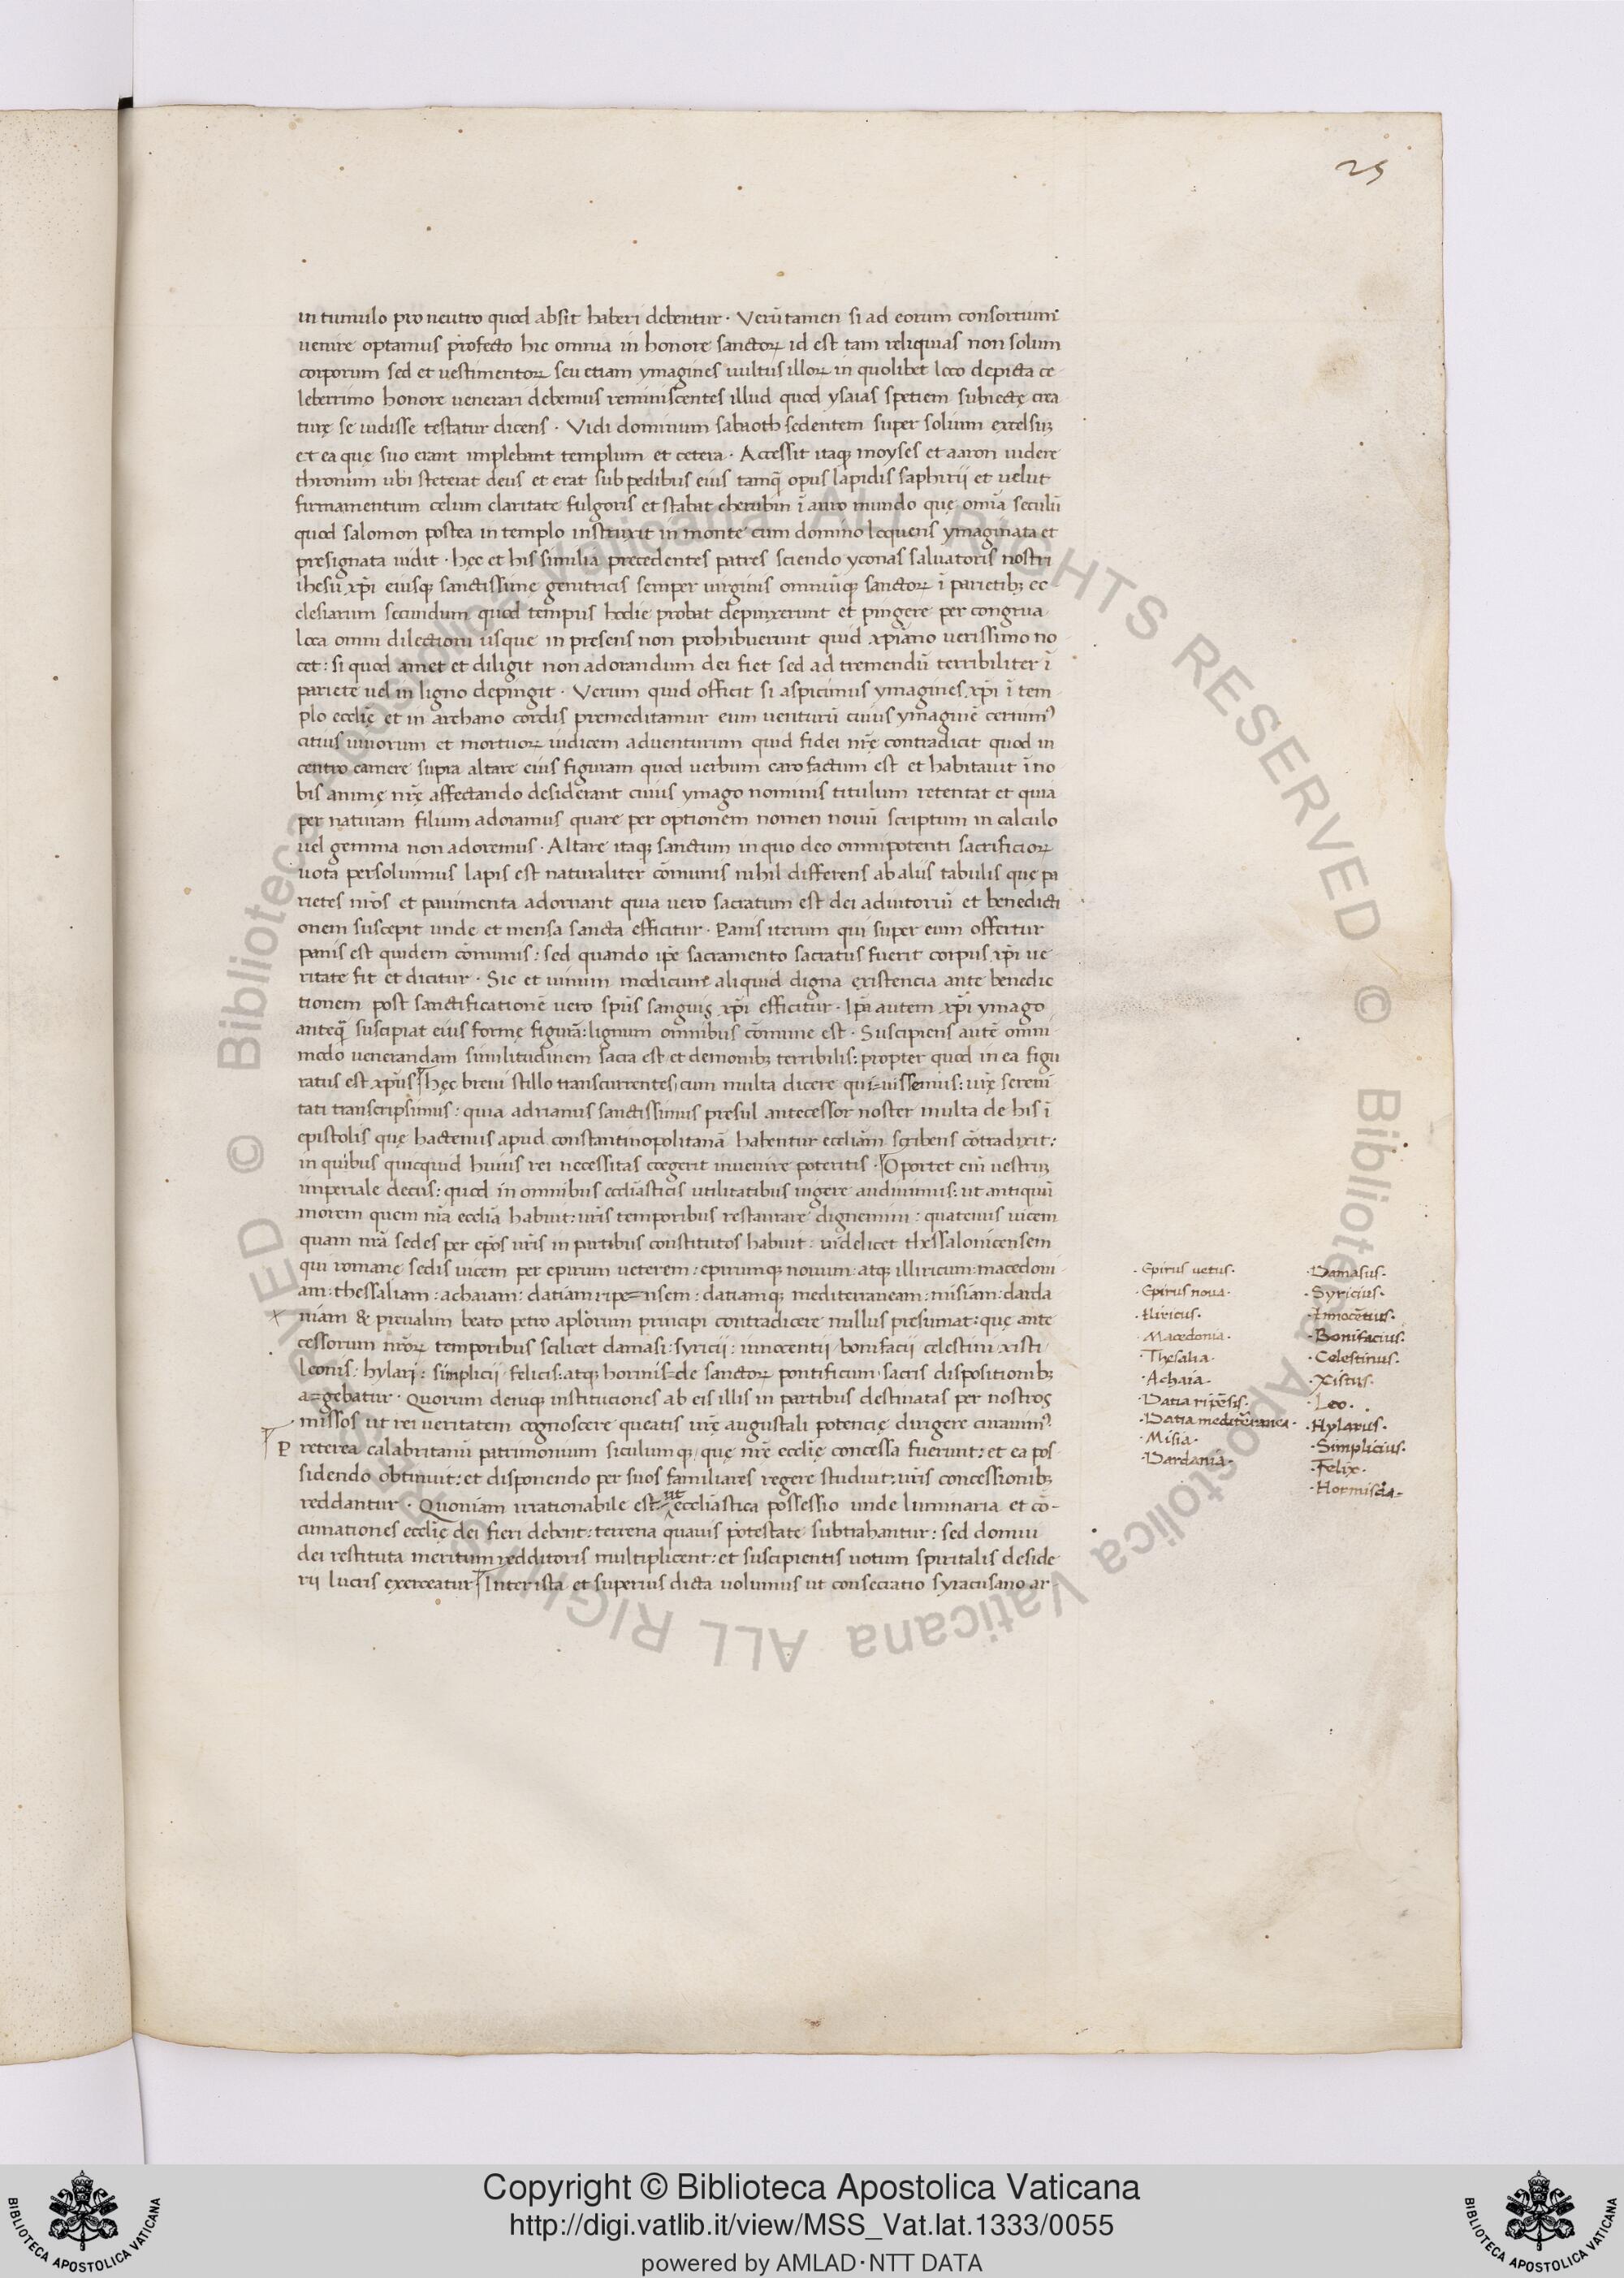 25
in tumulo pro neutro quod absit haberi debentur · Verūtamen si ad eorum consortium
uenire optamus profecto hic omnia in honore sanctoꝝ id est tam reliquias non solum
corporum sed et uestimentoꝝ seu etiam ymagines uultus illoꝝ in quolibet loco depicta ce
leberrimo honore uenerari debemus reminiscentes illud quod ysaias spetiem subiectę crea
turę se uidisse testatur dicens · Vidi dominum sabaoth sedentem super solium excelsuꝫ
et ea quę suo erant implebant templum et cetera · Accessit itaqꝫ moyses et aaron uidere
thronum ubi steterat deus et erat sub pedibus eius tamq̄ opus lapidis saphirii et uelut
firmamentum celum claritate fulgoris et stabat cherubin ī auro mundo quę omīa seculū
quod salomon postea in templo instruxit in monte cum domino loquens ymaginata et
presignata uidit · hęc et his similia precedentes patres sciendo yconas saluatoris nostri
ihesū xp̄i eiusqꝫ sanctissimę genitricis semper uirginis omniūqꝫ sanctoꝝ ī parietibꝫ ec
clesiarum secundum quod tempus hodie probat depinxerunt et pingere per congrua
loca omni dilectioni usque in presens non prohibuerunt quid xp̄iano uerissimo no
cet : si quod amet et diligit non adorandum dei fiet sed ad tremendū terribiliter ī
pariete uel in ligno depingit · Verum quid officit si aspicimus ymagines xp̄i ī tem
plo ecclīę et in archano cordis premeditamur eum uenturū cuius ymaginē cernimꝰ
citius uiuorum et mortuoꝝ iudicem aduenturum quid fidei nr̄ę contradicit quod in
centro camere supra altare eius figuram quod uerbum caro factum est et habitauit ī no
bis animę nr̄ę affectando desiderant cuius ymago nominis titulum retentat et quia
per naturam filium adoramus quare per optionem nomen nouū scriptum in calculo
uel gemma non adoremus · Altare itaqꝫ sanctum in quo deo omnipotenti sacrificioꝝ
uota persoluimus lapis est naturaliter cōmunis nihil differens ab aliis tabulis que pa
rietes nr̄os et pauimenta adornant quia uero sacratum est dei adiutoriū et benedicti
onem suscepit unde et mensa sancta efficitur · Panis iterum qui super eum offertur
panis est quidem cōmunis : sed quando ip̄e sacramento sacratus fuerit corpus xp̄i ue
ritate fit et dicitur · Sic et uinum modicum aliquid digna existencia ante benedic
tionem post sanctificationē uero sp̄us sanguis xp̄i efficitur · Ip̄a autem xp̄i ymago
anteq̄ suscipiat eius formę figurā : lignum omnibus cōmune est · Suscipiens autē omni
modo uenerandam similitudinem sacra est et demonibꝫ terribilis : propter quod in ea figu
ratus est xp̄us hęc breui stillo transcurrentes cum multa dicere qui=uissemus : ur̄ę sereni
tati transcripsimus : quia adrianus sanctissimus presul antecessor noster multa de his ī
epistolis quę hactenus apud constantinopolitanā habentur eccliam scribens cōtradixit :
in quibus quicquid huius rei necessitas coegerit inuenire poteritis · Oportet eni uestruꝫ
imperiale decus : quod in omnibus eccliasticis utilitatibus uigere audiuimus : ut antiquū
morem quem nr̄a ecclia habuit : ur̄is temporibus restaurare dignemini : quatenus uicem
quam nr̄a sedes per ep̄os ur̄is in partibus constitutos habuit : uidelicet thessalonicensem
qui romanę sedis uicem per epirum ueterem : epirumqꝫ nouum : atqꝫ illiricum : macedoni
am : thessaliam : achaiam : datiam ripe=nsem : datiamqꝫ mediterraneam : misiam : darda
niam & preualim beato petro apl̄orum principi contradicere nullus presumat : quę ante
cessorum nr̄oꝝ temporibus scilicet damasi : syricii : innocentii bonifacii celestini xisti
leonis : hylari : simplicii felicis : atqꝫ hormis=de sanctoꝝ pontificum sacris dispositionibꝫ
a=gebatur · Quorum deniqꝫ instituciones ab eis illis in partibus destinatas per nostros
missos ut rei ueritatem cognoscere queatis ur̄ę augustali potencię dirigere curauimꝰ
Preterea calabritanū patrimonium siculumqꝫ quę nr̄ę ecclīę concessa fuerunt : et ea pos
sidendo obtinuit : et disponendo per suos familiares regere studuit : ur̄is concessionibꝫ
reddantur · Quoniam irrationabile est ut eccliastica possessio unde luminaria et cō-
cinationes ecclīę dei fieri debent : terrena quauis potestate subtrahantur : sed domui
dei restituta meritum redditoris multiplicent : et suscipientis uotum spiritalis deside
rii lucris exerceatur Inter ista et superius dicta uolumus ut consecratio syracusano ar-
· Epirus uetus ·
· Epirus noua ·
· Iliricus ·
· Macedonia ·
· Thesalia ·
· Achaia ·
· Datia ripēsis ·
· Datia mediterranea ·
· Misia ·
· Dardania ·
· Damasus ·
· Syricius ·
· Innocētius ·
· Bonifacius ·
· Celestinus ·
· Xistus ·
· Leo ·
· Hylarus ·
· Simplicius ·
· Felix ·
· Hormisda ·
© Biblioteca Apostolica Vaticana ALL RIGHTS RESERVED
© Biblioteca Apostolica Vaticana ALL RIGHTS RESERVED
Copyright © Biblioteca Apostolica Vaticana
http://digi.vatlib.it/view/MSS_Vat.lat.1333/0055
powered by AMLAD·NTT DATA
BIBLIOTECA APOSTOLICA VATICANA
BIBLIOTECA APOSTOLICA VATICANA